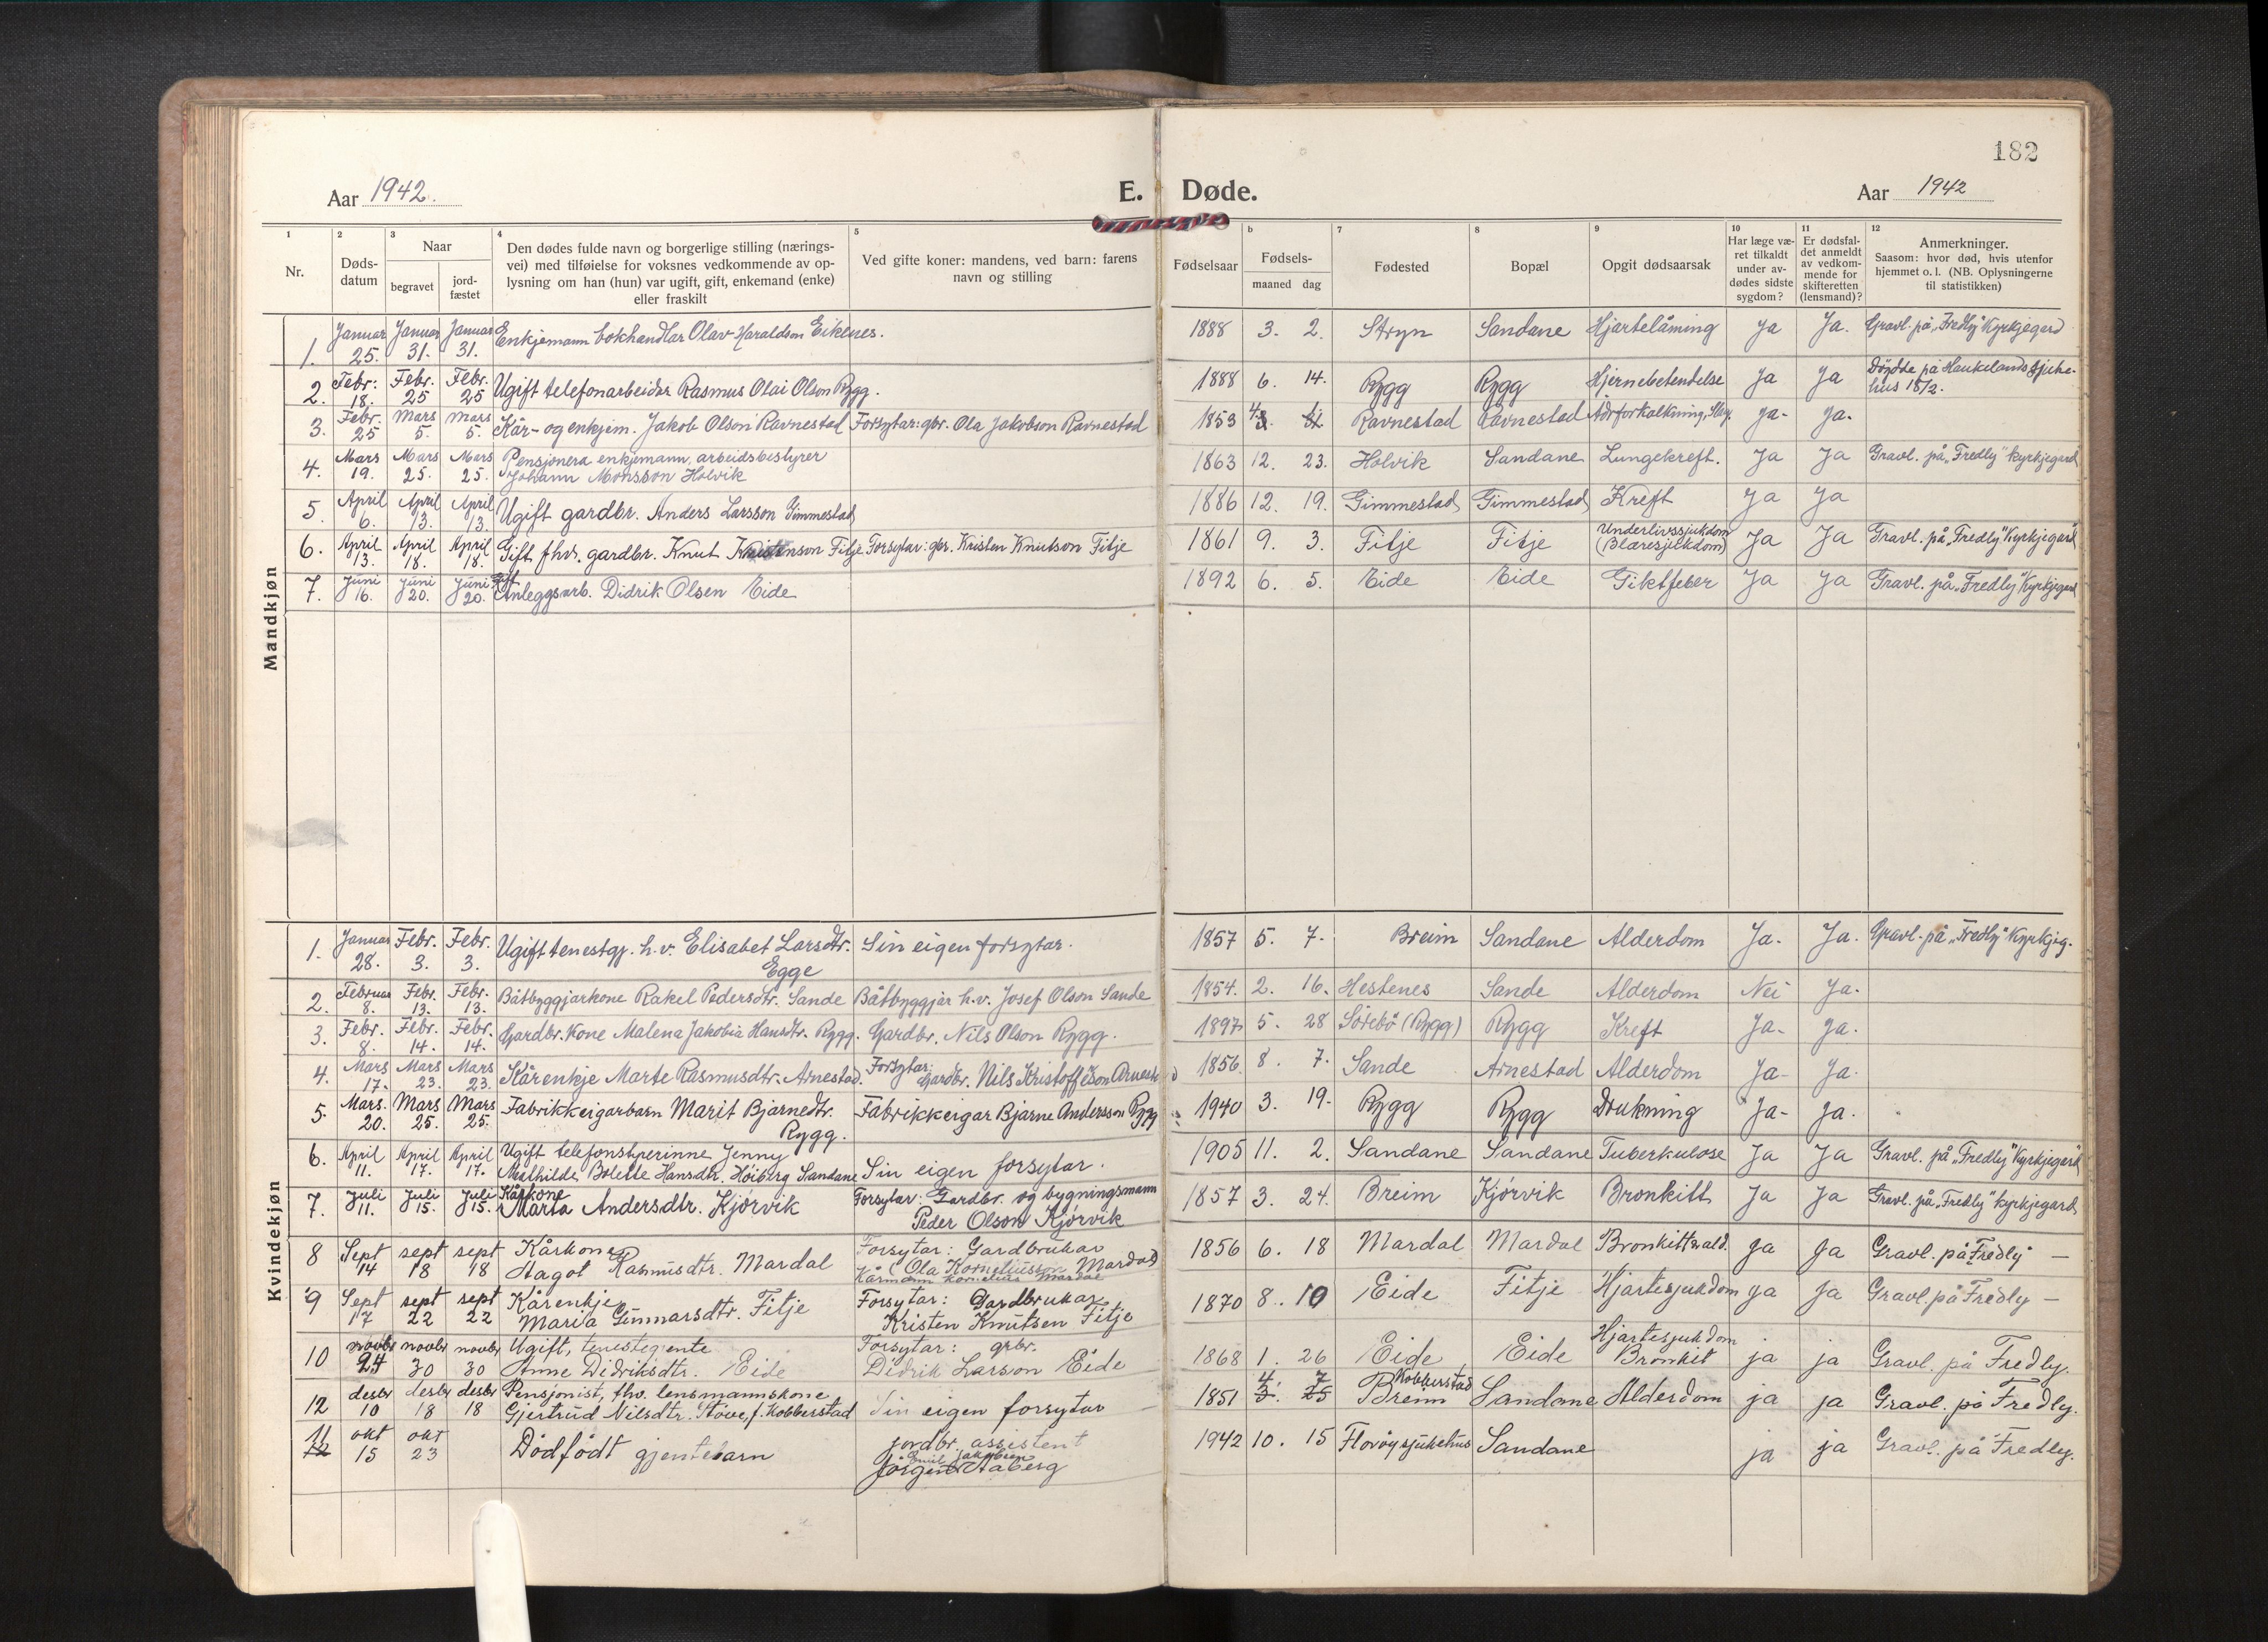 182
Aar 1942.
E. Døde.
Aar 1942
1 2 3 4 5 6 7 8 9 10 11 12
Nr.
Døds-
datum
Naar
begravet
jord-
fæstet
Den dødes fulde navn og borgerlige stilling (nærings-
vei) med tilføielse for voksnes vedkommende av op-
lysning om han (hun) var ugift, gift, enkemand (enke)
eller fraskilt
Ved gifte koner: mandens, ved barn: farens
navn og stilling
Fødselsaar
Fødsels-
maaned dag
Fødested
Bopæl
Opgit dødsaarsak
Har læge væ-
ret tilkaldt
under av-
dødes sidste
sygdom?
Er dødsfal-
det anmeldt
av vedkom-
mende for
skifteretten
(lensmand)?
Anmerkninger.
Saasom: hvor død, hvis utenfor
hjemmet o. l. (NB. Oplysningerne
til statistikken)
Mandkjøn
1. Januar 25. Januar 31. Januar 31. Enkjemann bokhandlar Olav Haraldson Eikenes. 1888 3. 2. Stryn Sandane Hjartelåming Ja Ja. Gravl. på „Fredly" Kyrkjegard
2. Febr: 18. Febr. 25 Febr. 25 Ugift telefonarbeider Rasmus Olai Olson Rygg. 1888 6. 14. Rygg Rygg Hjernebetendelse Ja Ja Døydde på Haukelands Sjuke-
hus 18/2.
3. Febr. 25 Mars 5. Mars 5. Kår- og enkjem. Jakob Olson Ravnestad Forsytar: gbr. Ola Jakobson Ravnestad 1853 Ravnestad Ravnestad Ja- Ja-
4. Mars 19. Mars 25. Mars 25. Pensjonera enkjemann, arbeidsbestyrer
Johann Monsson Holvik 1863 12. 23. Holvik Sandane Lungekreft. Ja Ja Gravl. på „Fredly" kyrkjegard
5. April 6. April 13. April 13. Ugift gardbr. Anders Larsson Gimmestad 1886 12. 19. Gimmestad Gimmestad Kreft Ja Ja
6. April 13. April 18. April 18. Gift fhv. gardbr. Knut Kristenson Fitje Forsytar: gbr. Kristen Knutson Fitje 1861 9. 3. Fitje Fitje Underlivssjukdom
(Blæresjukdom) Ja Ja Gravl. på „Fredly" Kyrkjegard
7. Juni 16. Juni 20. Juni 20. Gift
Anleggsarb. Didrik Olsen Eide 1892 6. 5. Eide Eide Giktfeber Ja Ja Gravl. på „Fredly" Kyrkjegard
Kvindekjøn
1. Januar 28. Febr. 3. Febr. 3. Ugift tenestgj. h.v. Elisabet Larsdtr.
Egge Sin eigen forsytar. 1857 5. 7. Breim Sandane Alderdom Ja. Ja. Gravl. på „Fredly" Kyrkjeg.
2. Februar 8. Febr. 13. Febr. 13. Båtbyggjarkone Rakel Pedersdtr. Sande Båtbyggjar h.v. Josef Olson Sande 1854. 2. 16. Hestenes Sande Alderdom Nei Ja.
3. Febr. 8. Febr. 14. Febr. 14. Gardbr. Kone Malena Jakobia Hansdtr. Rygg. Gardbr. Nils Olson Rygg. 1897 5. 28 Sørebø (Rygg) Rygg Kreft Ja- Ja.
4. Mars 17. Mars 23. Mars 23. Kårenkje Marte Rasmusdtr. Arnestad. Forsytar:
Gardbr. Nils Kristoffeson Arnestad 1856. 8. 7. Sande Arnestad Alderdom Ja- Ja.
5. Mars. 20. Mars 25. Mars 25. Fabrikkeigarbarn Marit Bjarnedtr.
Rygg. Fabrikkeigar Bjarne Andersson Rygg 1940 3. 19. Rygg Rygg Drukning Ja- Ja.
6. April 11. April 17. April 17. Ugift telefonstyrerinne Jenny
Mathilde Bolette Hansdtr. Høiberg Sandane Sin eigen forsytar. 1905 11. 2. Sandane Sandane Tuberkulose Ja Ja Gravl. på „Fredly" Kyrkjegard
7. Juli 11. Juli 15. Juli 15. Kårkone
Marta Andersdtr. Kjørvik Forsytar: Gardbr. og bygningsmann
Peder Olson Kjørvik 1857 3. 24. Breim Kjørvik Bronkitt Ja Ja Gravl. på „Fredly" kyrkjegard
8 Sept 14 sept 18 sept 18 Kårkone
Aagot Rasmusdtr. Mardal Forsytar: Gardbrukar
Ola Korneliusson Mardal
Kårmann Kornelius Mardal 1856 6. 18 Mardal Mardal Bronkitt ja ja Gravl. på Fredly —
9 Sept 17 sept 22 sept 22 Kårenkje
Maria Gunnarsdtr. Fitje Forsytar: Gardbrukar
Kristen Knutsen Fitje 1870 8. 10 Eide Fitje Hjartesjukdom ja ja Gravl. på Fredly —
10 novbr 24 novbr 30 novbr 30 Ugift, tenestegjente
Anne Didriksdtr. Eide Forsytar: grbr.
Didrik Larson Eide 1868 1. 26 Eide Eide Hjartesjukdom
Bronkit ja ja Gravl. på Fredly.
12 desbr 10 desbr 18 desbr 18 Pensjonist, fhv. lensmannskone
Gjertrud Nilsdtr. Støve, f. Kobberstad Sin eigen forsytar 1851 4. 7 3. 25 Kobberstad
Breim Sandane Alderdom ja ja Gravl. på Fredly.
11 12 okt 15 okt 23 Dødfødt gjentebarn jordbr. assistent
Emil Jakobsen
Jørgen Aaberg 1942 10. 15 Florøy sjukehus Sandane ja ja Gravl. på Fredly.